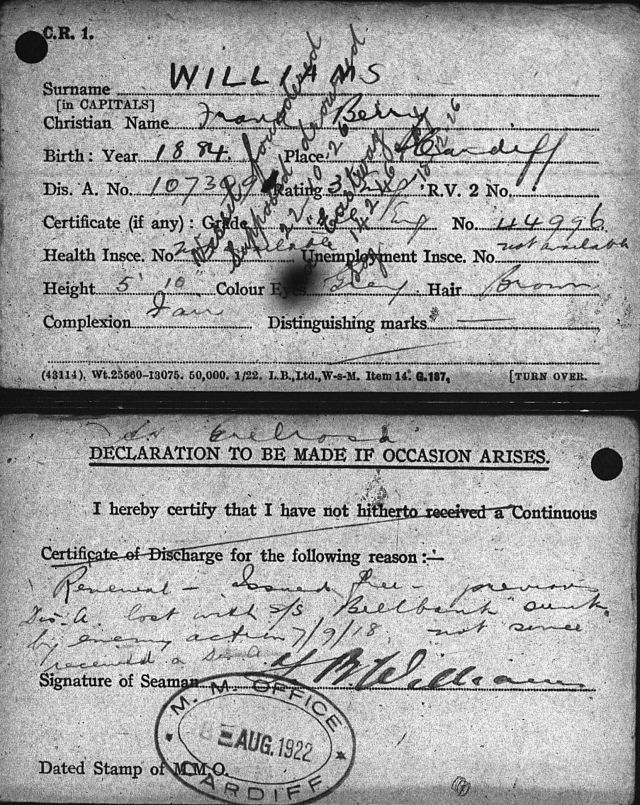 C.R. 1.
Surname WILLIAMS
[in CAPITALS]
Christian Name Berry
Birth: Year 1884. Place Cardiff
Dis. A. No. Rating R.V. 2 No.
Certificate (if any): Grade No. 44996
Health Insce. No. Unemployment Insce. No. not available
Height 5' 10 Colour Eyes Grey Hair Brown
Complexion Fair Distinguishing marks —
(43114). Wt.25560-13075. 50,000. 1/22. I.B.,Ltd.,W-s-M. Item 14. G.187. [TURN OVER.
foundered
Supposed drowned
22.10.26
DECLARATION TO BE MADE IF OCCASION ARISES.
I hereby certify that I have not hitherto received a Continuous
Certificate of Discharge for the following reason:—
Renewal – Issued free – previous
Dis. A. lost with s/s Bellbank sunk
by enemy action 7/9/18. not since
received a Dis. A
Signature of Seaman B Williams
M. M. OFFICE
AUG. 1922
CARDIFF
Dated Stamp of M.M.O.